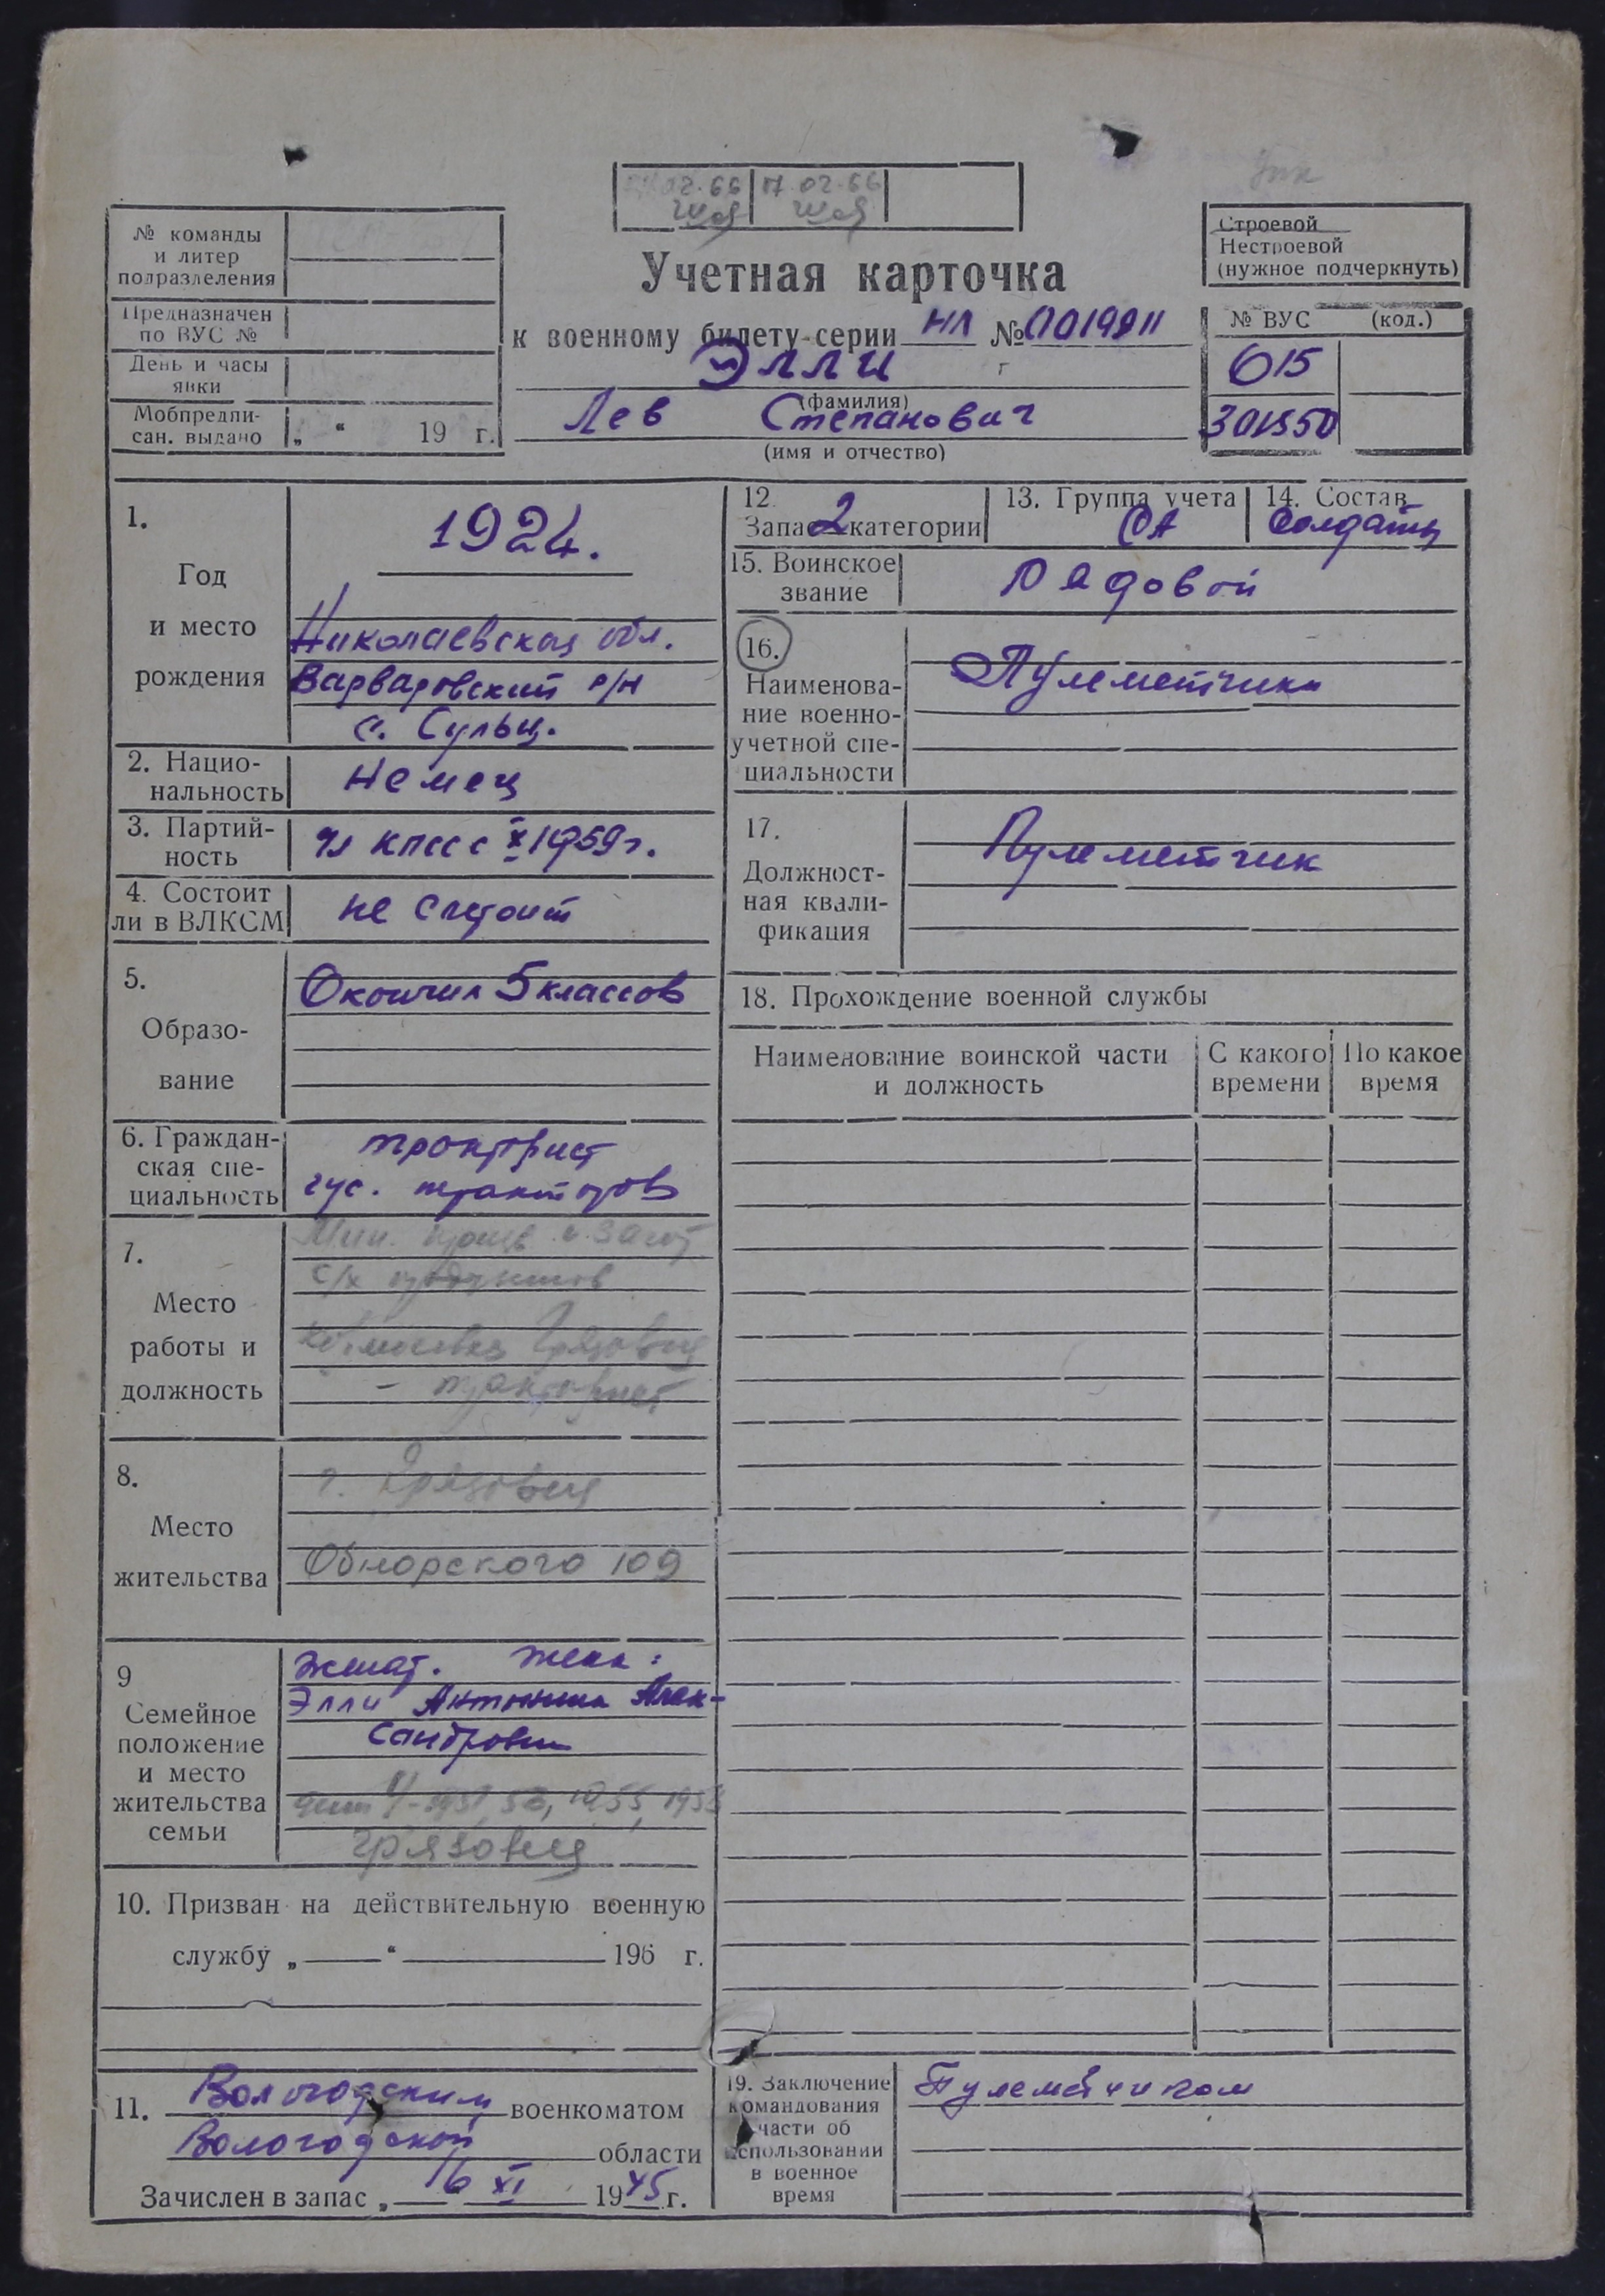 02.66 17.02.66
№ команды
и литер
подразделения
Предназначен
по ВУС №
День и часы
явки
Мобпредпи-
сан. выдано „ “ 19 г.
Учетная карточка
к военному билету серии НЛ №
Элли
(фамилия)
Лев Степанович
(имя и отчество)
Строевой
Нестроевой
(нужное подчеркнуть)
№ ВУС (код.)
015
301550
1.
Год
и место
рождения
1924.
Николаевская обл.
Варваровский р/н
с. Сульц.
2. Нацио-
нальность
Немец
3. Партий-
ность
чл КПСС с X 1959 г.
4. Состоит
ли в ВЛКСМ
не состоит
5.
Образо-
вание
Окончил 5 классов
6. Граждан-
ская спе-
циальность
тракторист
гус. тракторов
7.
Место
работы и
должность
Мин. произв. и загот
с/х продуктов
Грязовец
- тракторист
8.
Место
жительства
г. Грязовец
Обнорского 109
9
Семейное
положение
и место
жительства
семьи
женат. жена:
Элли Антонина Алек-
сандровна
дети 1955, 1958
Грязовец
10. Призван на действительную военную
службу „ “ 196 г.
11. Вологодским военкоматом
Вологодской области
Зачислен в запас „ 16 XI 1945 г.
12.
Запас 2 категории
13. Группа учета
СА
14. Состав
Солдаты
15. Воинское
звание
Рядовой
16.
Наименова-
ние военно-
учетной спе-
циальности
Пулеметчики
17.
Должност-
ная квали-
фикация
Пулеметчик
18. Прохождение военной службы
Наименование воинской части
и должность
С какого
времени
По какое
время
19. Заключение
командования
части об
использовании
в военное
время
Пулеметчиком